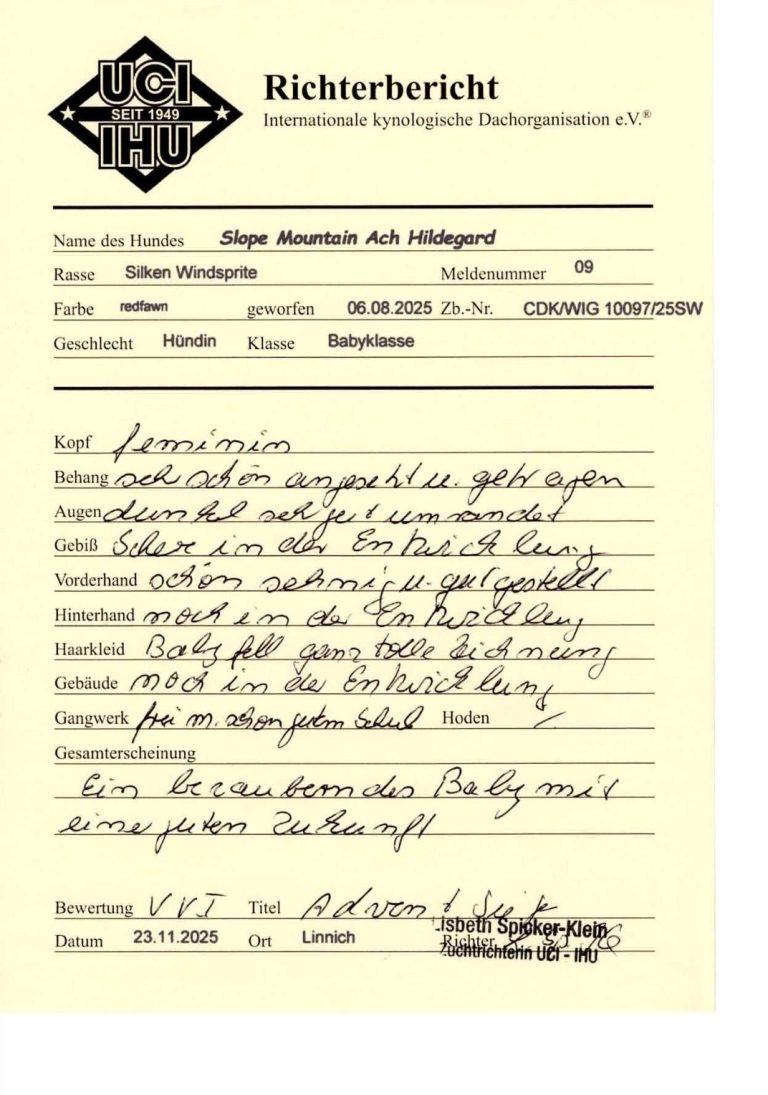 UCI
SEIT 1949
IHU
Richterbericht
Internationale kynologische Dachorganisation e.V.®
Name des Hundes Slope Mountain Ach Hildegard
Rasse Silken Windsprite Meldenummer 09
Farbe redfawn geworfen 06.08.2025 Zb.-Nr. CDK/WIG 10097/25SW
Geschlecht Hündin Klasse Babyklasse
Kopf feminin
Behang seh schön angesetzt u. getragen
Augen dunkel seh gut umrandet
Gebiß Schere in der Entwicklung
Vorderhand schön sehnig u. gut gestellt
Hinterhand noch in der Entwicklung
Haarkleid Babyfell ganz tolle Zeichnung
Gebäude noch in der Entwicklung
Gangwerk frei m. schon gutem Schub Hoden /
Gesamterscheinung
Ein bezauberndes Baby mit
eine guten Zukunft
Bewertung VV1 Titel Advent
Datum 23.11.2025 Ort Linnich Richter
Lisbeth Spicker-Klein
Zuchtrichterin UCI - IHU